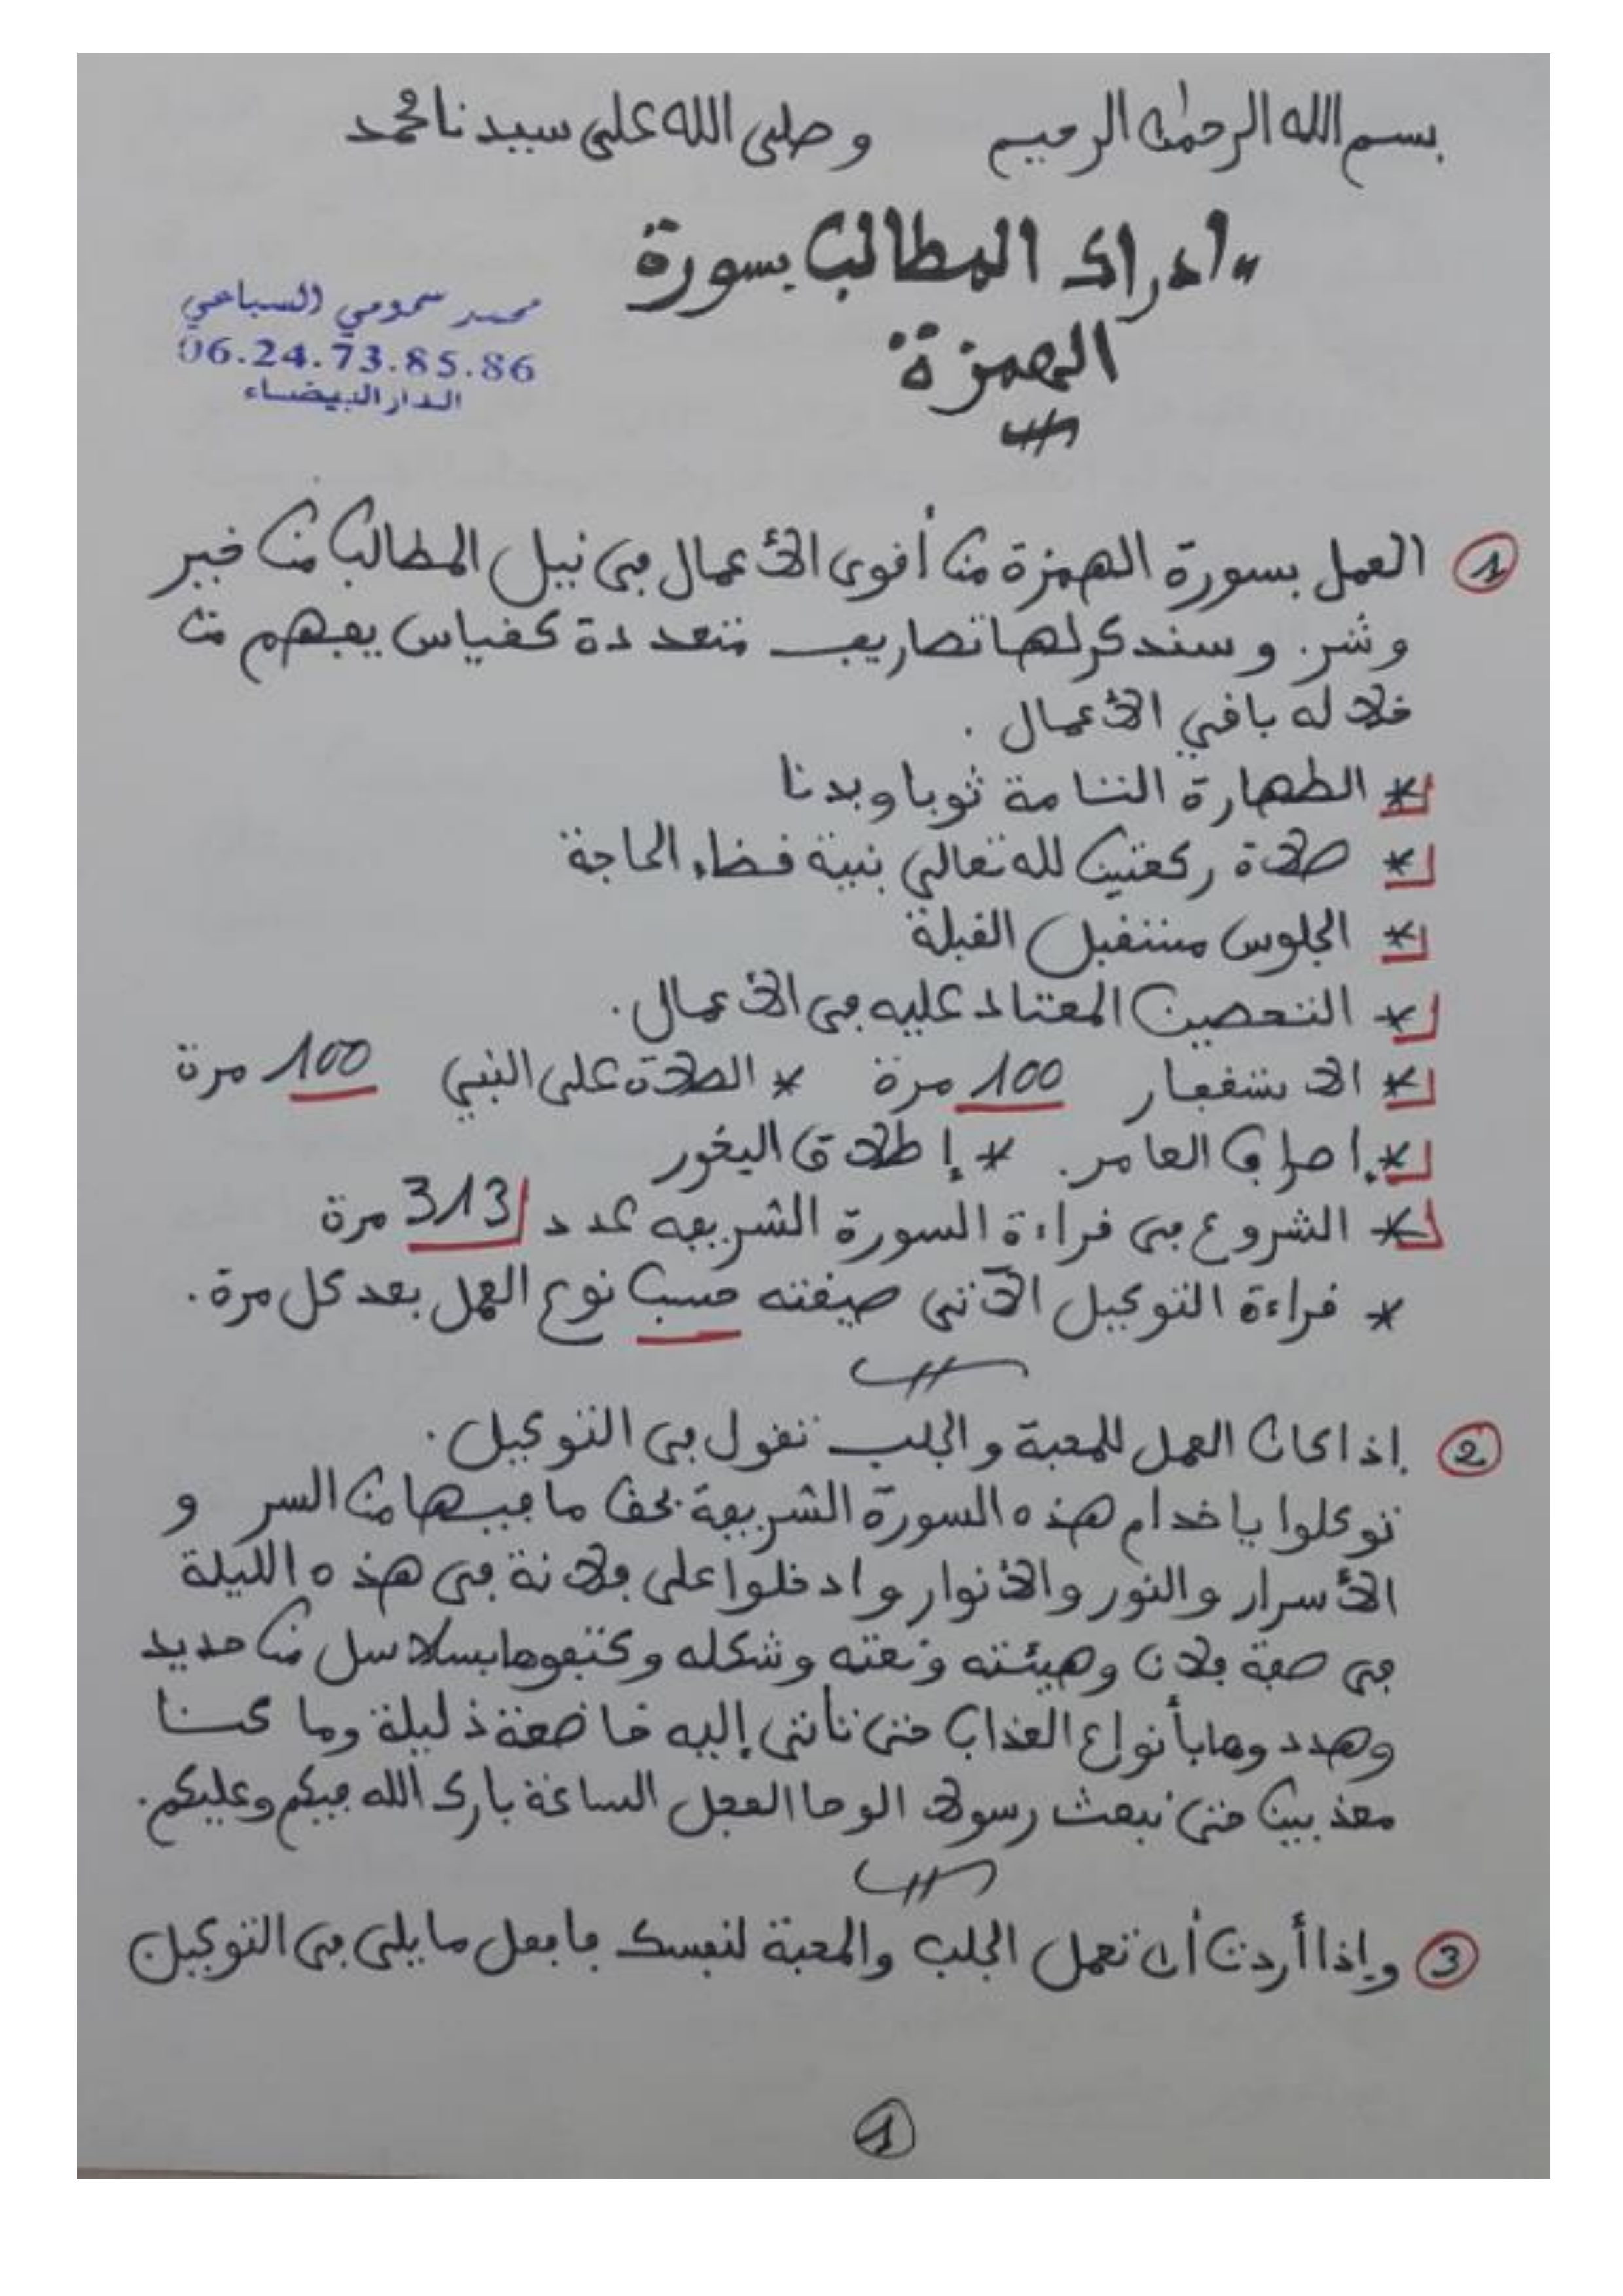 بسم الله الرحمٰن الرحيم وصلى الله على سيدنا محمد
"ادراك المطالب بسورة
الهمزة"
محمد سمومي السباعي
06.24.73.85.86
الدار البيضاء
1 العمل بسورة الهمزة من أقوى الأعمال في نيل المطالب من خير
وشر. وسنذكر لها تصاريف متعددة كقياس يفهم من
خلاله باقي الأعمال .
* الطهارة التامة ثوبا وبدنا
* صلاة ركعتين لله تعالى بنية قضاء الحاجة
* الجلوس مستقبل القبلة
* التحصين المعتاد عليه في الأعمال.
* الاستغفار 100 مرة * الصلاة على النبي 100 مرة
* إصراف العامر. * إطلاق البخور
* الشروع في قراءة السورة الشريفة عدد 313 مرة
* قراءة التوكيل الآتي صيغته حسب نوع العمل بعد كل مرة.
2 إذا كان العمل للمحبة والجلب تقول في التوكيل.
توكلوا يا خدام هذه السورة الشريفة بحق ما فيها من السر و
الأسرار والنور والأنوار وادخلوا على فلانة في هذه الليلة
في صفة فلان وهيئته ونعته وشكله وكتفوها بسلاسل من حديد
وهددوها بأنواع العذاب حتى تأتي إليه خاضعة ذليلة وما كنا
معذبين حتى نبعث رسولا الوحا العجل الساعة بارك الله فيكم وعليكم.
3 وإذا أردت أن تعمل الجلب والمحبة لنفسك فافعل ما يلي في التوكيل
1